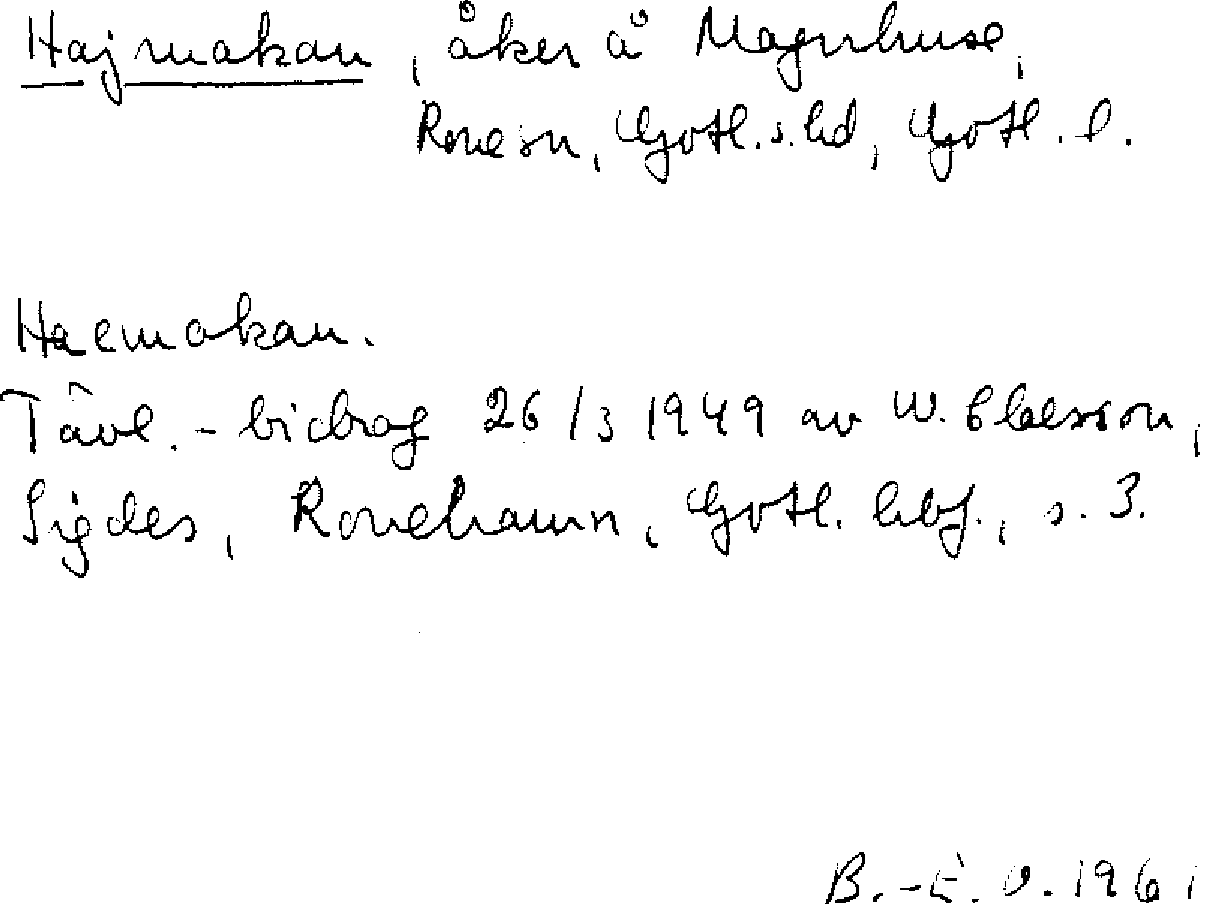 Hajmakan, åker å Magnhuse,
Rone sn, Gotl. s. hd, Gotl. l.
Haemakan.
Tävl.-bidrag 26/3 1949 av W. Ebbesson,
Sigdes, Ronehamn, Gotl. hbf., s. 3.
B.-E. O. 1961